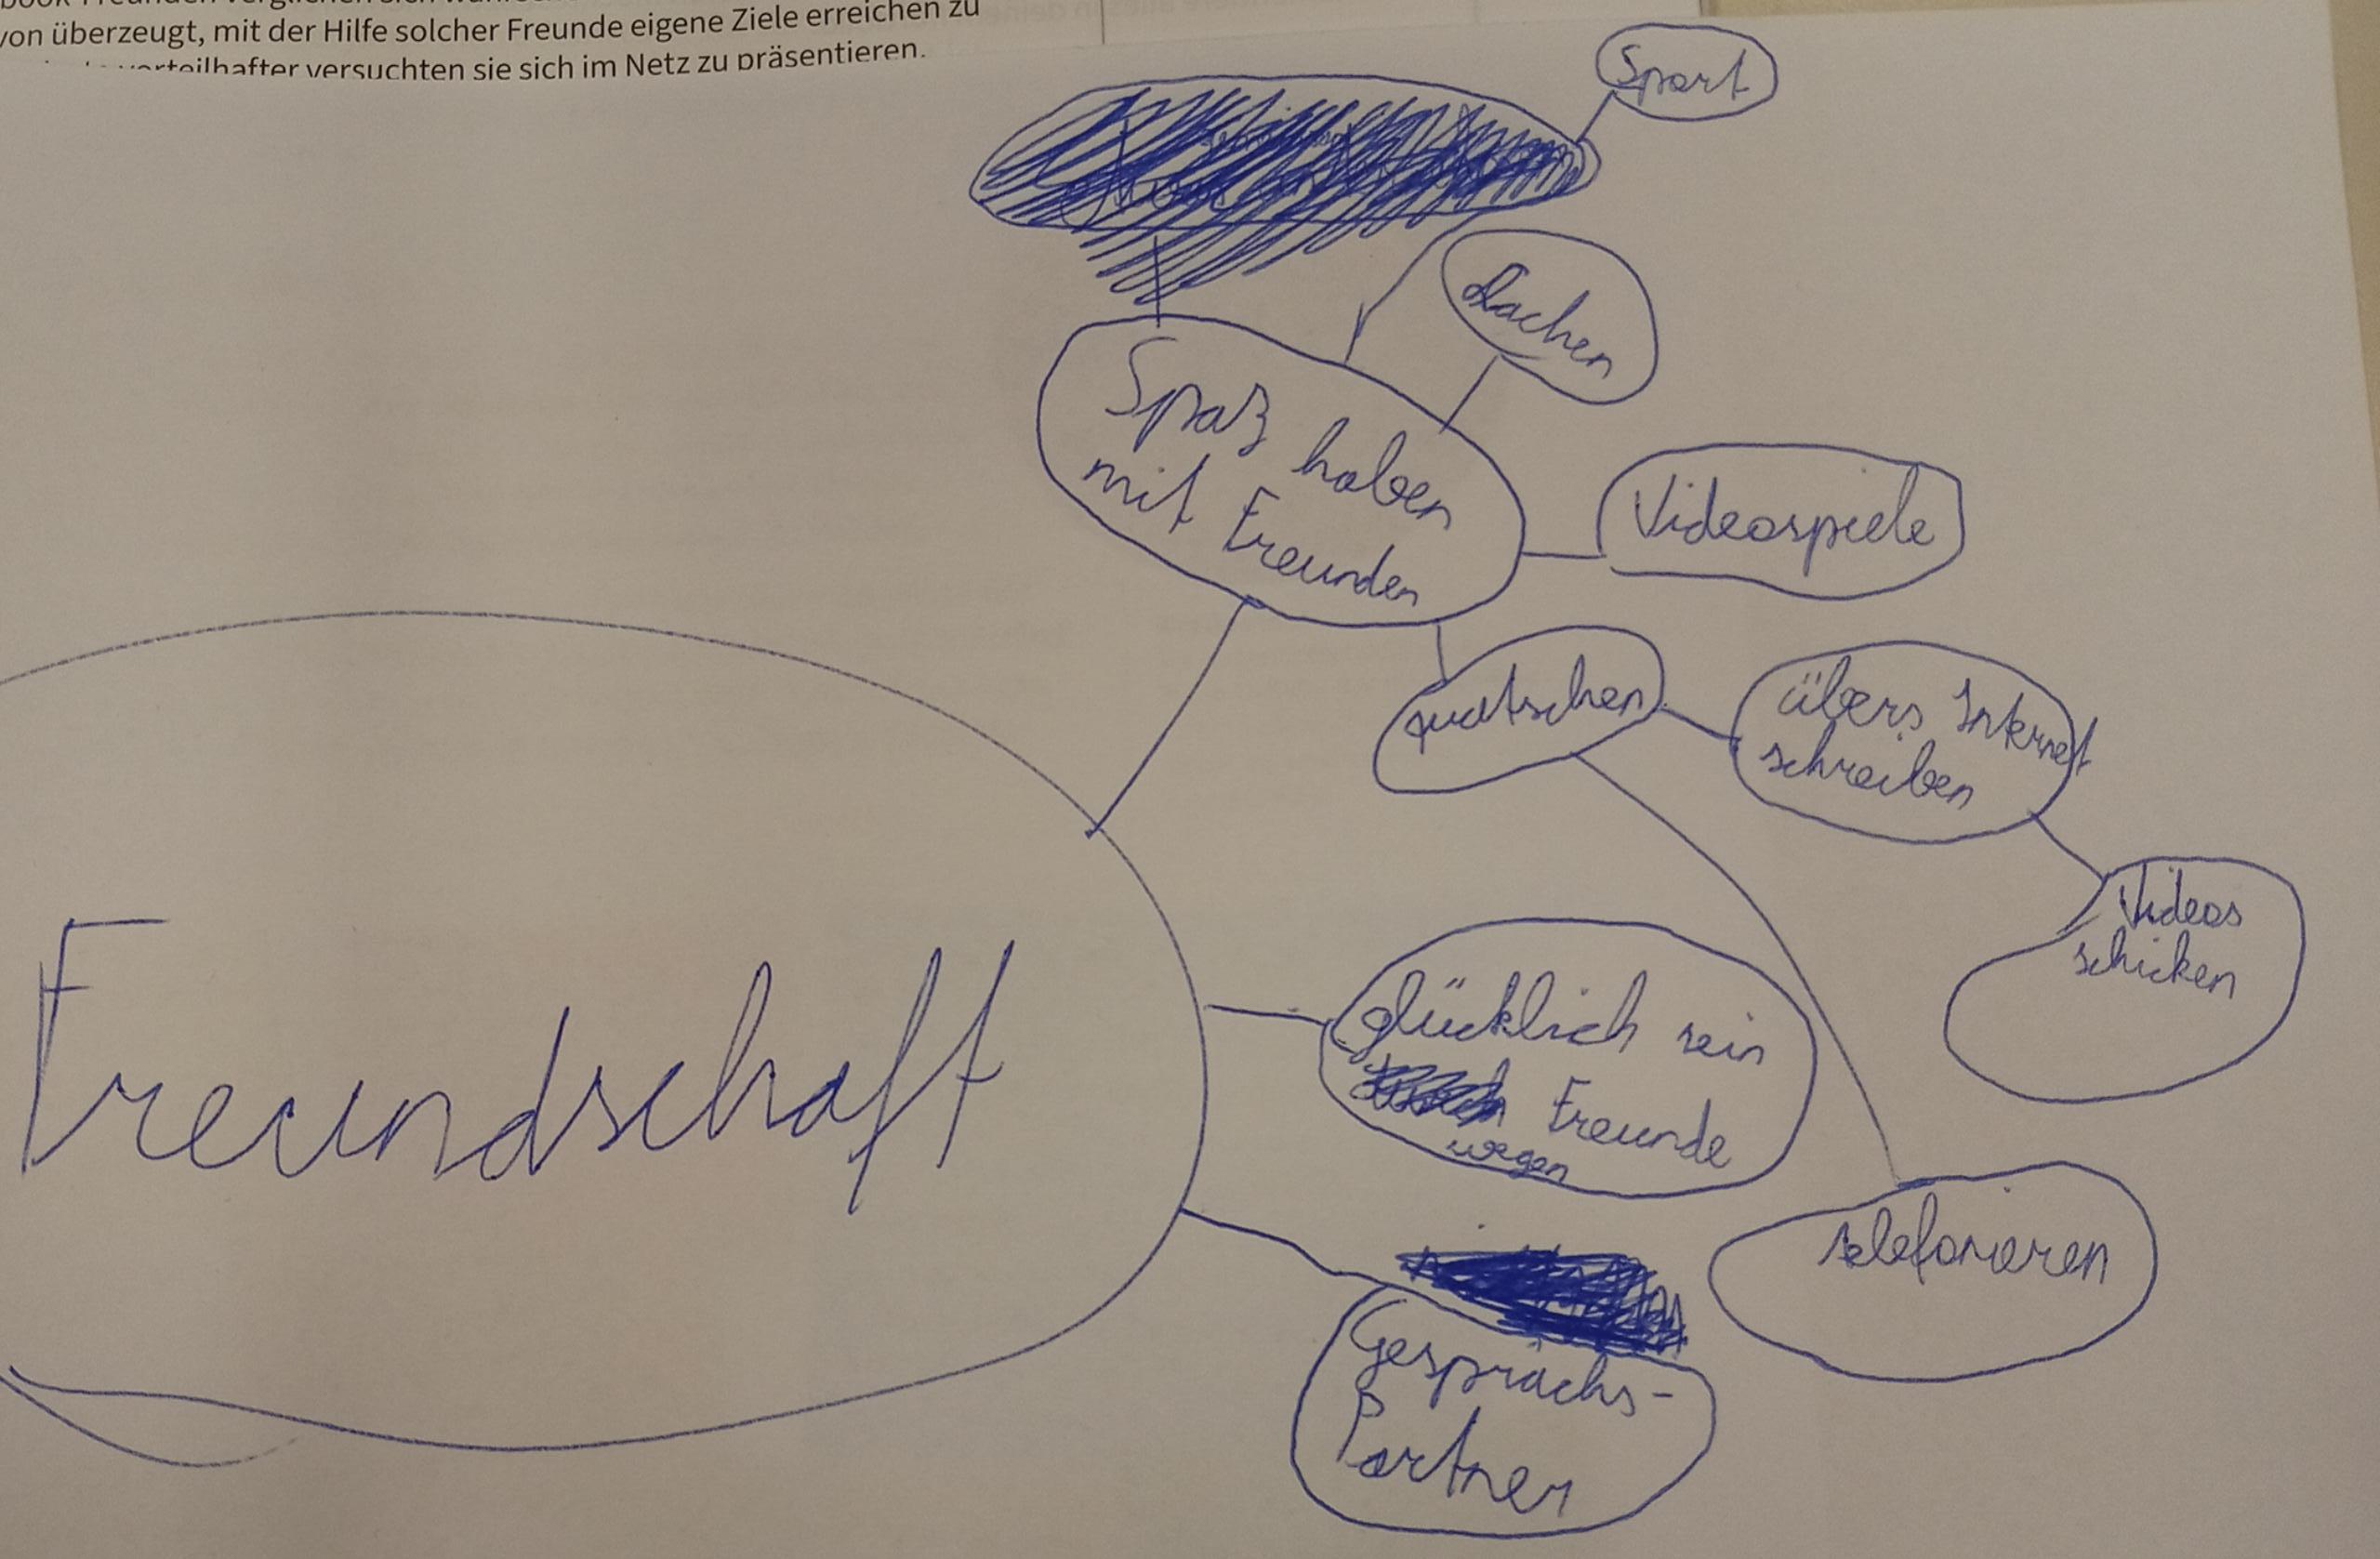 von überzeugt, mit der Hilfe solcher Freunde eigene Ziele erreichen zu
vorteilhafter versuchten sie sich im Netz zu präsentieren.
Sport
Lachen
Spaß haben
mit Freunden
Videospiele
quatschen
übers Internet
schreiben
Videos
schicken
Freundschaft
glücklich sein
Freunde
wegen
telefonieren
Gesprächs-
Partner